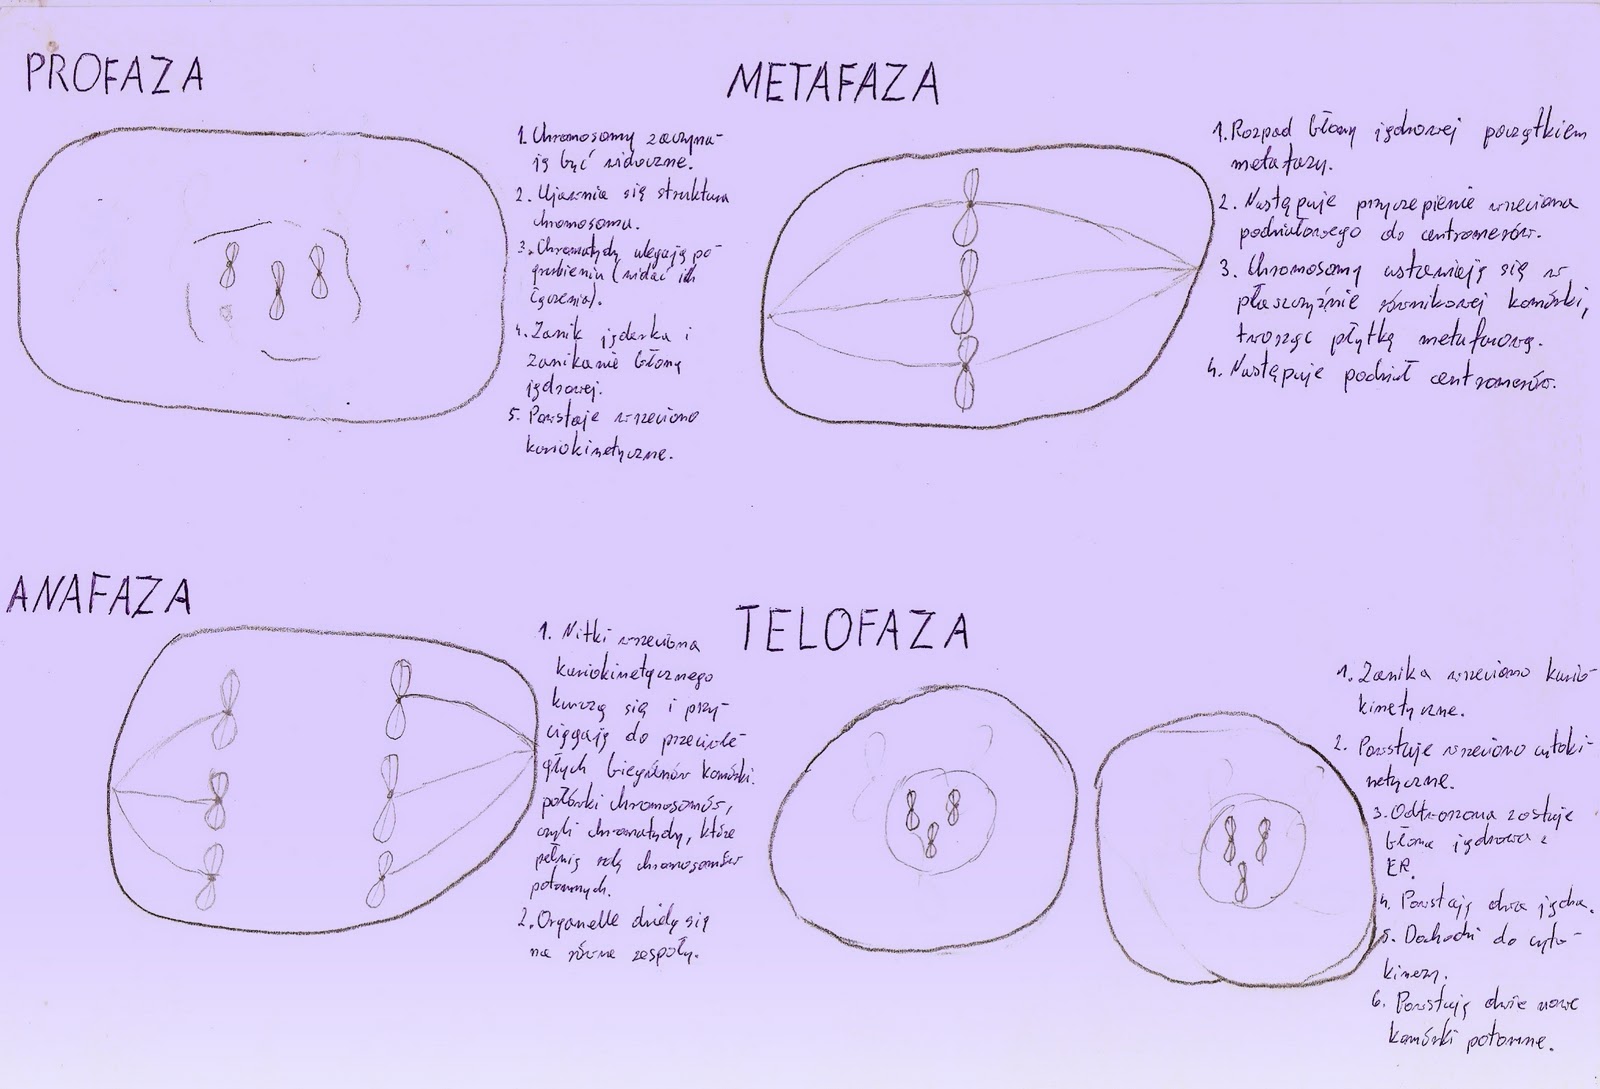 PROFAZA
1. Chromosomy zaczyna-
ją być widoczne.
2. Ujawnia się struktura
chromosomu.
3. Chromatydy ulegają po-
grubieniu (widać ich
łączenia).
4. Zanik jąderka i
zanikanie błony
jądrowej.
5. Powstaje wrzeciono
kariokinetyczne.
METAFAZA
1. Rozpad błony jądrowej początkiem
metafazy.
2. Następuje przyczepienie wrzeciona
podziałowego do centromerów.
3. Chromosomy ustawiają się w
płaszczyźnie równikowej komórki,
tworząc płytkę metafazową.
4. Następuje podział centromerów.
ANAFAZA
1. Nitki wrzeciona
kariokinetycznego
kurczą się i przy-
ciągają do przeciwle-
głych biegunów komórki
połówki chromosomów,
czyli chromatydy, które
pełnią rolę chromosomów
potomnych.
2. Organelle dzielą się
na równe zespoły.
TELOFAZA
1. Zanika wrzeciono kario-
kinetyczne.
2. Powstaje wrzeciono cytoki-
netyczne.
3. Odtworzona zostaje
błona jądrowa z
ER.
4. Powstają dwa jądra.
5. Dochodzi do cyto-
kinezy.
6. Powstają dwie nowe
komórki potomne.